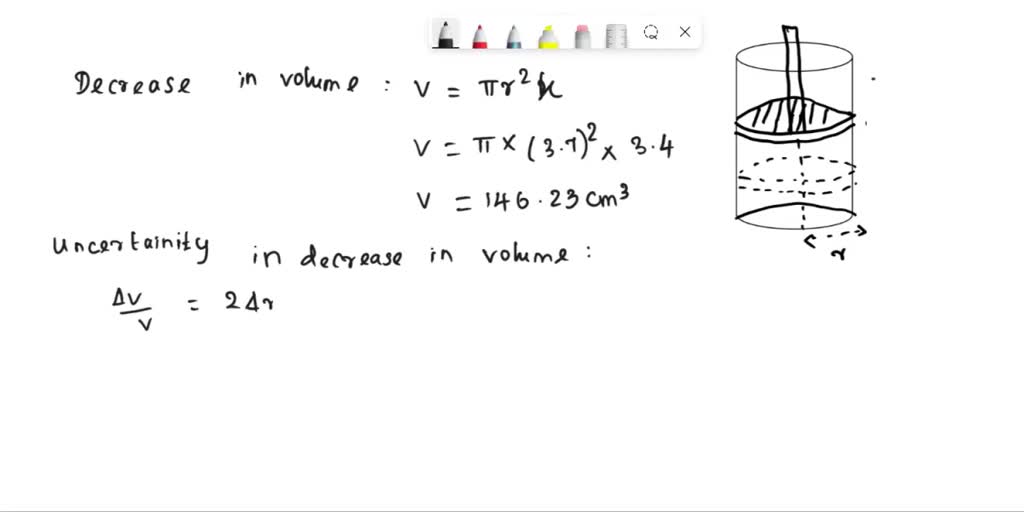 Decrease in volume : V = πr²x
V = π × (3.7)² × 3.4
V = 146.23 cm³
Uncertainity in decrease in volume :
ΔV/V = 2Δr
r